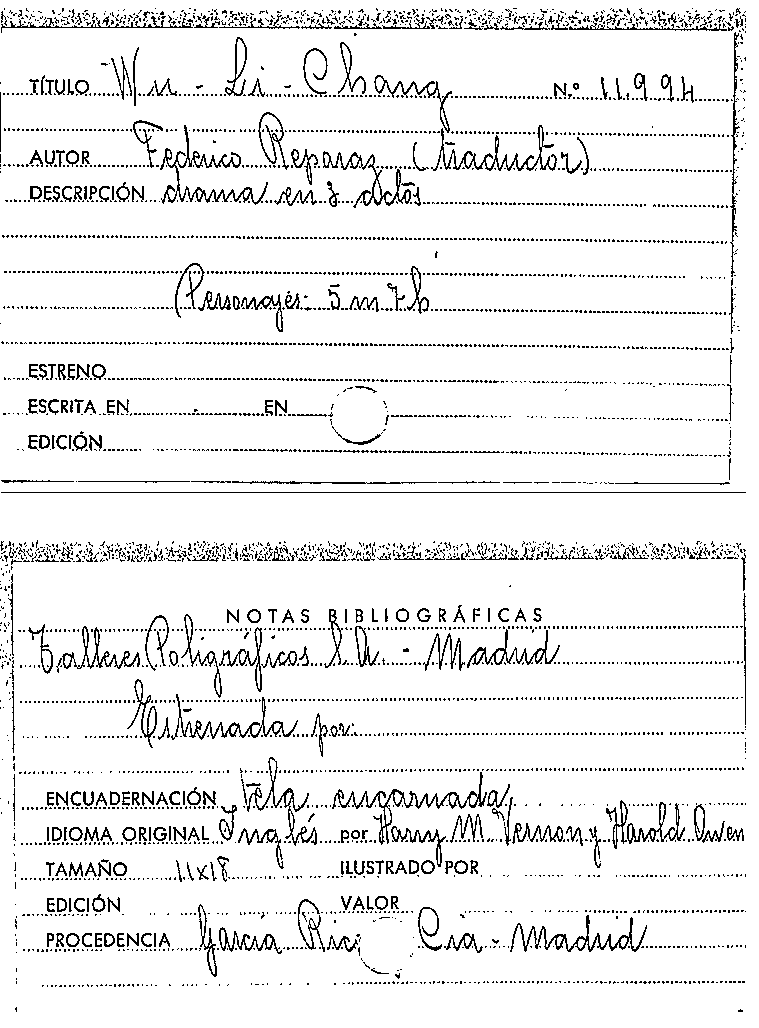 TÍTULO Wu-Li-Chang N.º 11.994
AUTOR Federico Reparaz (traductor)
DESCRIPCIÓN drama en 3 actos
Personajes: 5 m 7 h
ESTRENO
ESCRITA EN EN
EDICIÓN
NOTAS BIBLIOGRÁFICAS
Talleres Poligráficos S.A. - Madrid
Estrenada por:
ENCUADERNACIÓN tela encarnada
IDIOMA ORIGINAL Inglés por Harry M. Vernon y Harold Owen
TAMAÑO 11x18 ILUSTRADO POR
EDICIÓN VALOR
PROCEDENCIA García Rico Cia - Madrid